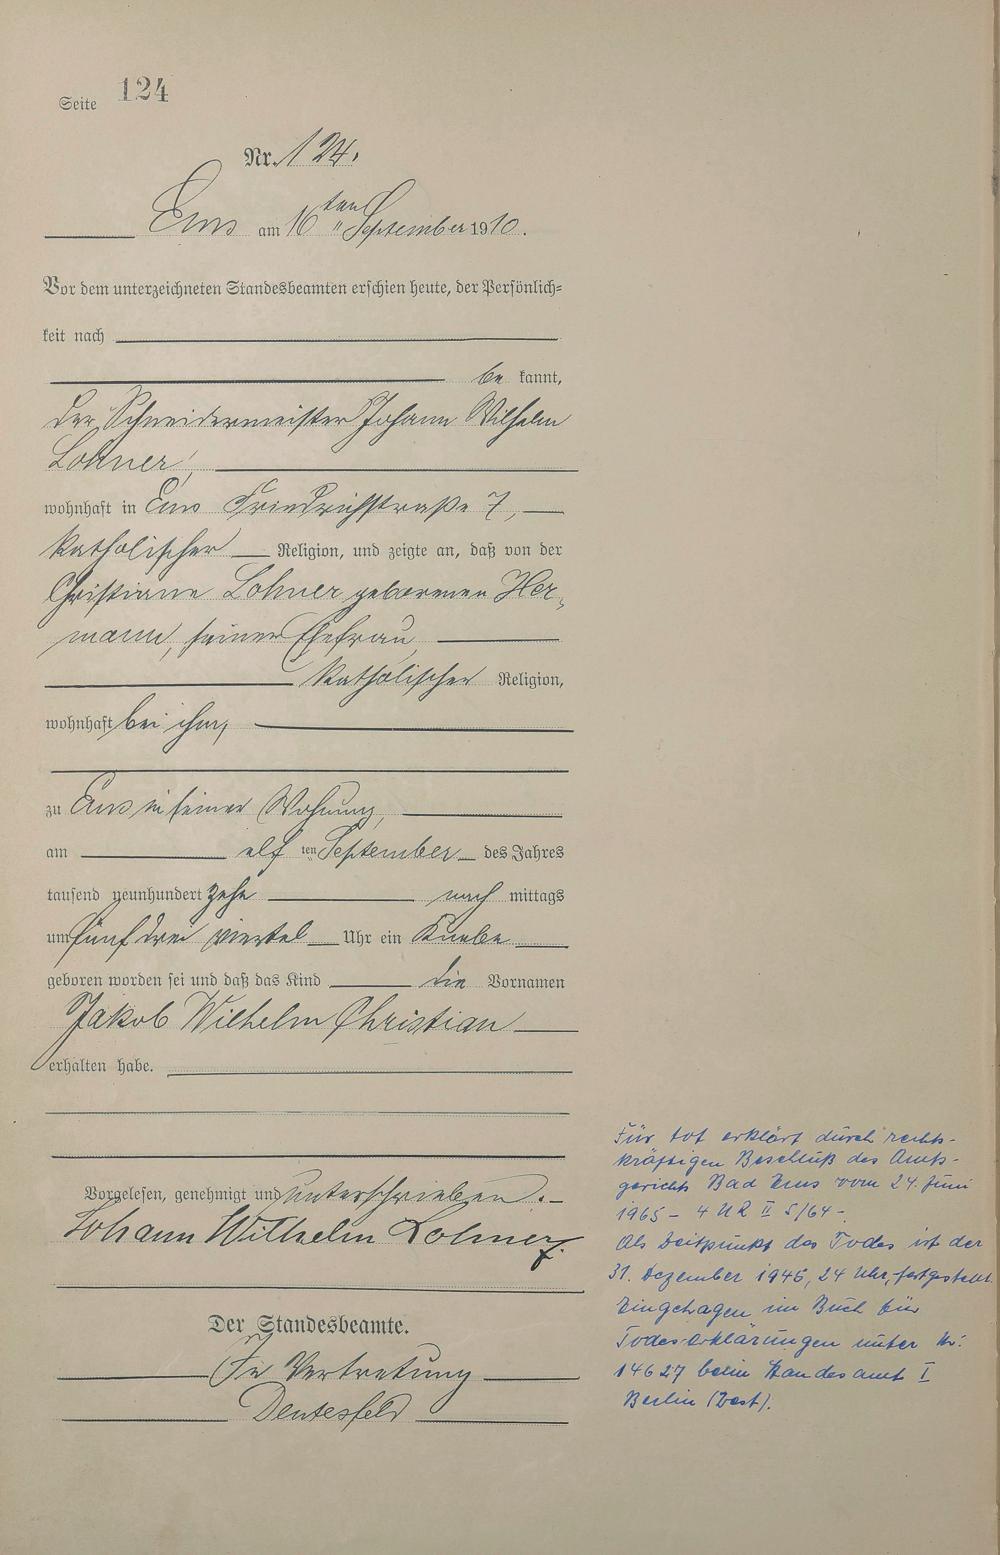 Seite 124
Nr. 124.
Ems am 16ten September 1910.
Vor dem unterzeichneten Standesbeamten erschien heute, der Persönlich=
keit nach
be kannt,
der Schneidermeister Johann Wilhelm
Lohner,
wohnhaft in Ems Friedrichstraße 7,
katholischer Religion, und zeigte an, daß von der
Christiane Lohner geborenen Her-
mann, seiner Ehefrau
katholischer Religion,
wohnhaft bei ihm,
zu Ems in seiner Wohnung,
am elf ten September des Jahres
tausend neunhundert zehn nach mittags
um fünf drei viertel Uhr ein Knabe
geboren worden sei und daß das Kind die Vornamen
Jakob Wilhelm Christian
erhalten habe.
Vorgelesen, genehmigt und unterschrieben.
Johann Wilhelm Lohner
Der Standesbeamte.
In Vertretung
Für tot erklärt durch rechts-
kräftigen Beschluß des Amts-
gerichts Bad Ems vom 24. Juni
1965 - 4 UR II 5/64 -.
Als Zeitpunkt des Todes ist der
31. Dezember 1945, 24 Uhr, festgestellt.
Eingetragen im Buch für
Todeserklärungen unter Nr.
14627 beim Standesamt I
Berlin (West).